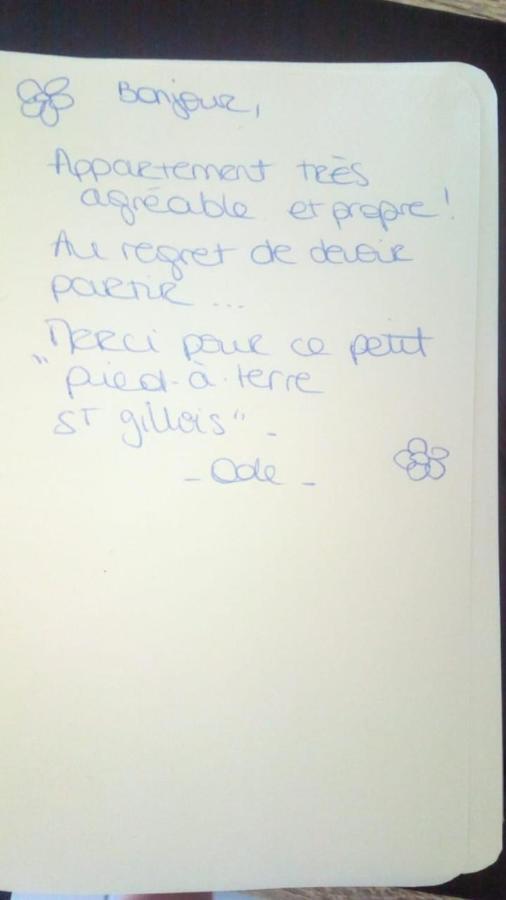 Bonjour,
Appartement très
agréable et propre !
Au regret de devoir
partir ...
Merci pour ce petit
"pied-à-terre
ST gillois".
- Ode -